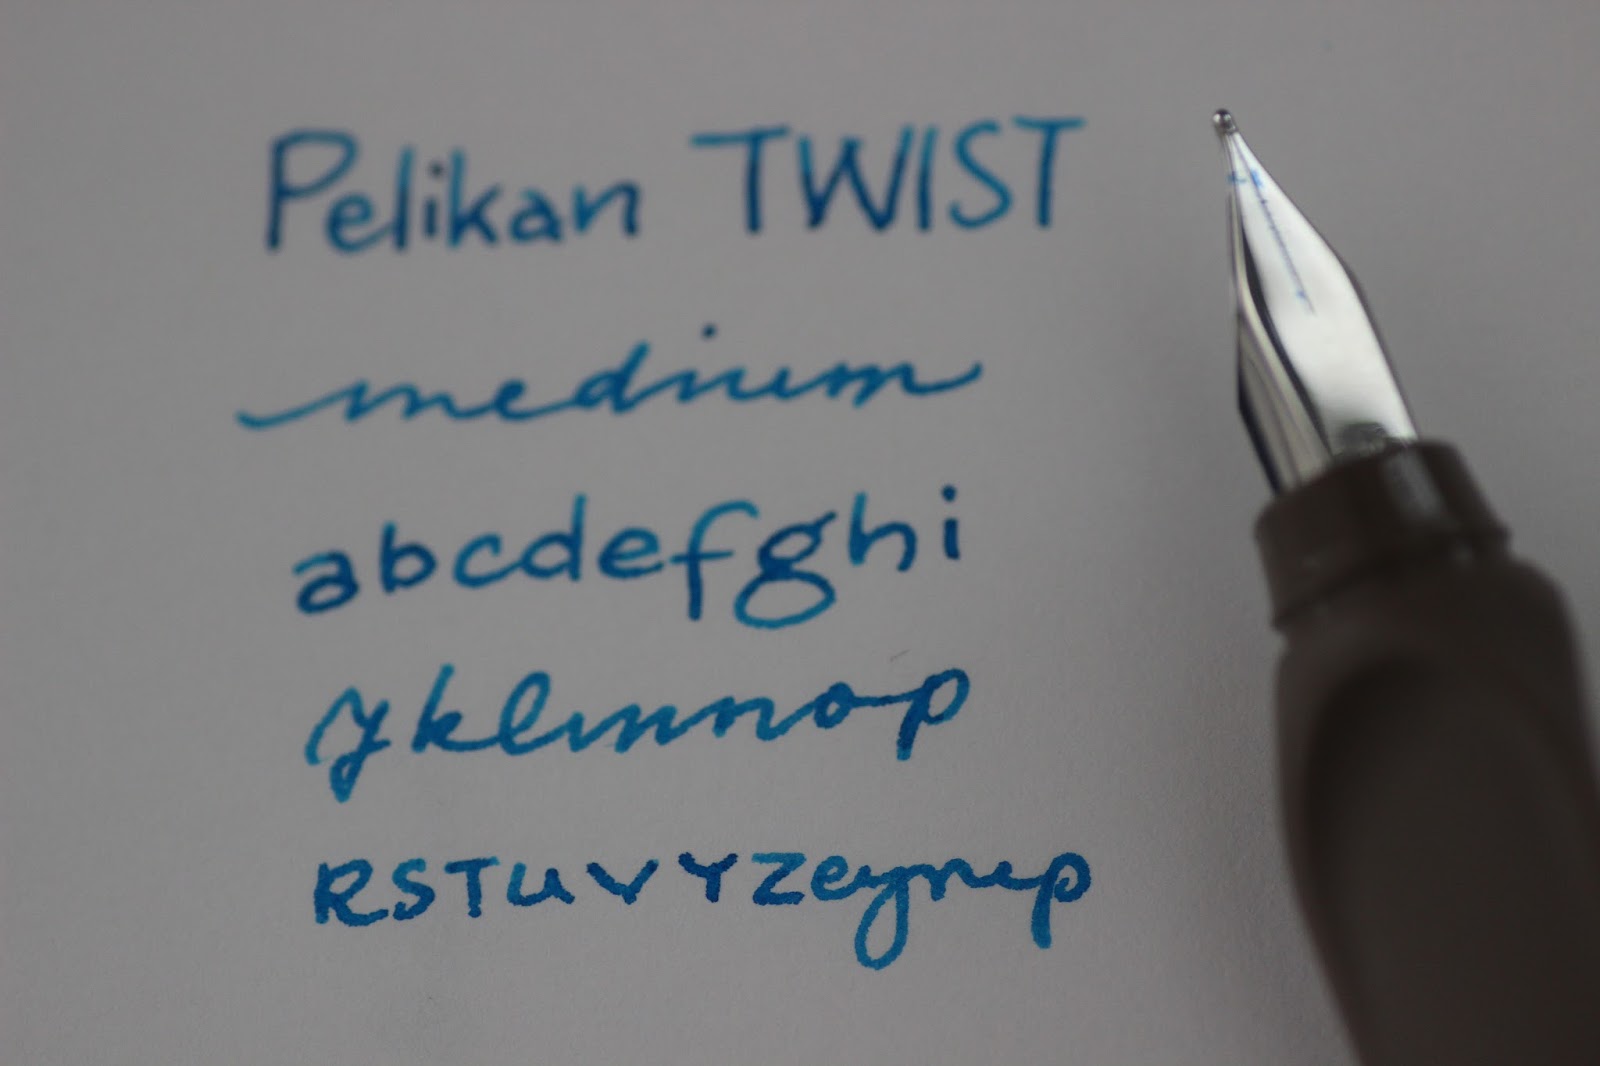 Pelikan TWIST
medium
abcdefghi
jklmnop
RSTUVYZeynep